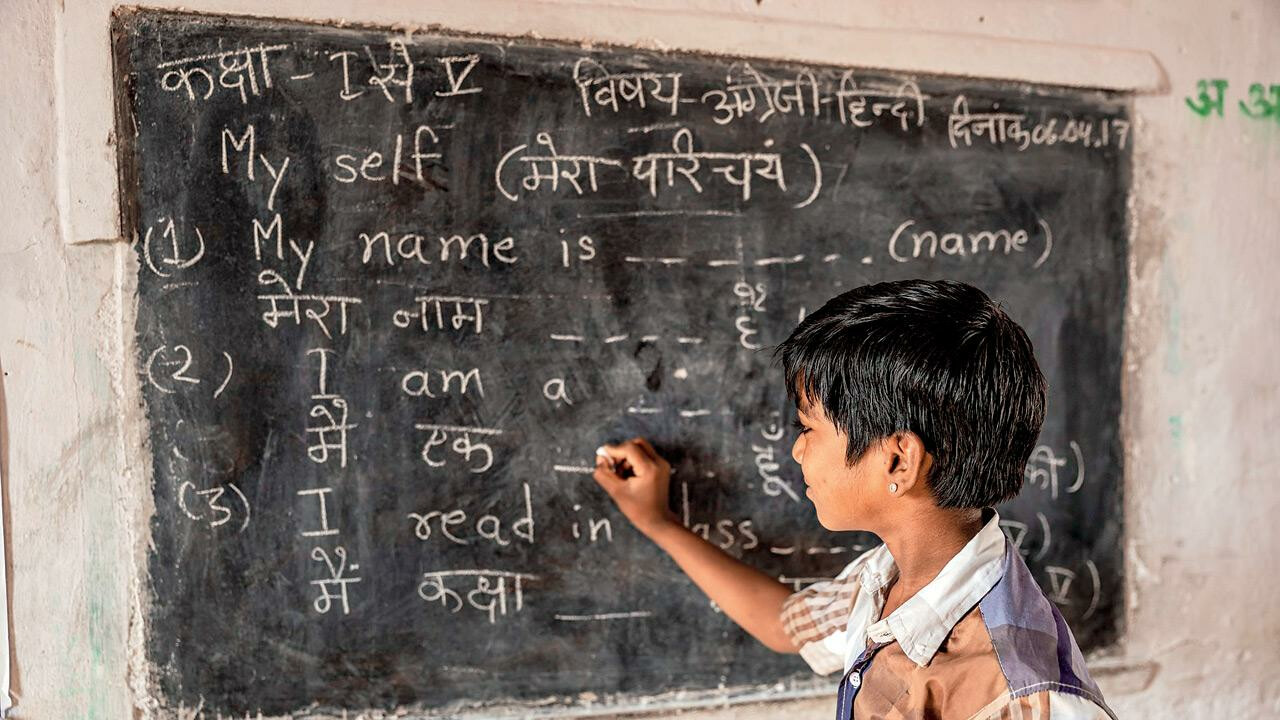 कक्षा - I से V विषय - अंग्रेजी - हिन्दी दिनांक 06.04.17
अ आ
My self (मेरा परिचय)
(1) My name is _ _ _ _ _ _ . (name)
मेरा नाम _ _ _ _ है
(2) I am a _ _ _
मैं एक _ हूँ की)
(3) I read in class _ _ _ V)
मैं कक्षा _ V)